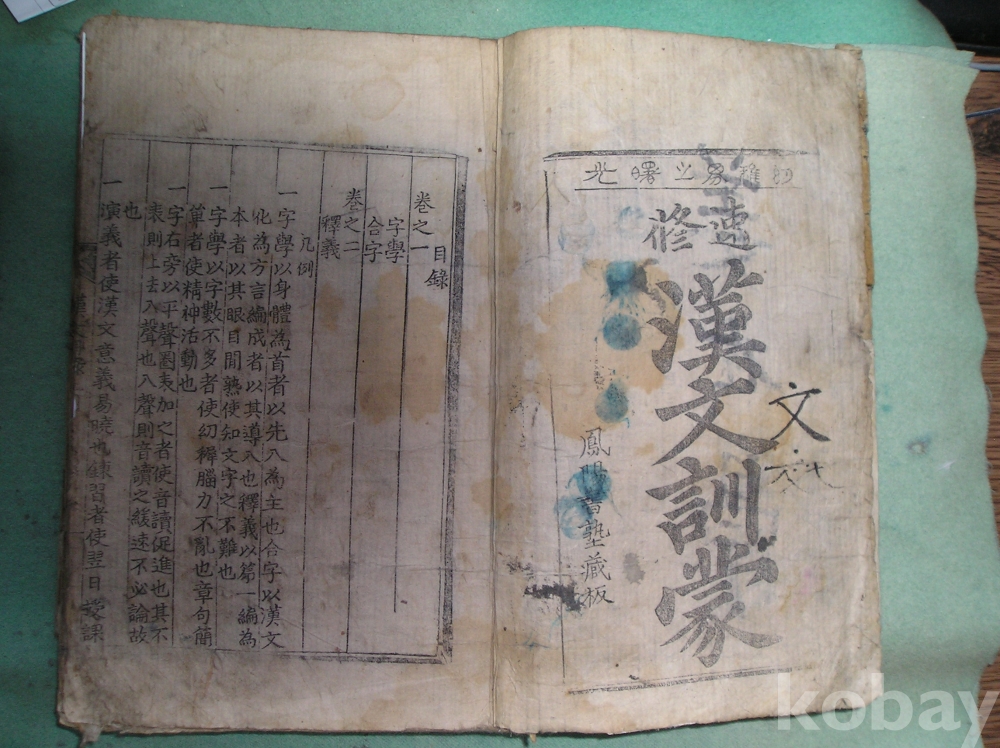 速修
漢文訓蒙
文
鳳陽書塾藏板
目錄
卷之一
字學
合字
卷之二
釋義
凡例
一字學以身體為首者以先入為主也合字以漢文
化為方言編成者以其導入也釋義以第一編為
本者以其眼目間熟使知文字之不難也
一字學以字數不多者使幼穉腦力不亂也章句簡
算者使精神活動也
一字右旁以平聲圈表加之者使音讀促進也其不
表則上去入聲也入聲則音讀之緩速不必論故
也
一演義者使漢文意義易曉也練習者使翌日課
kobay